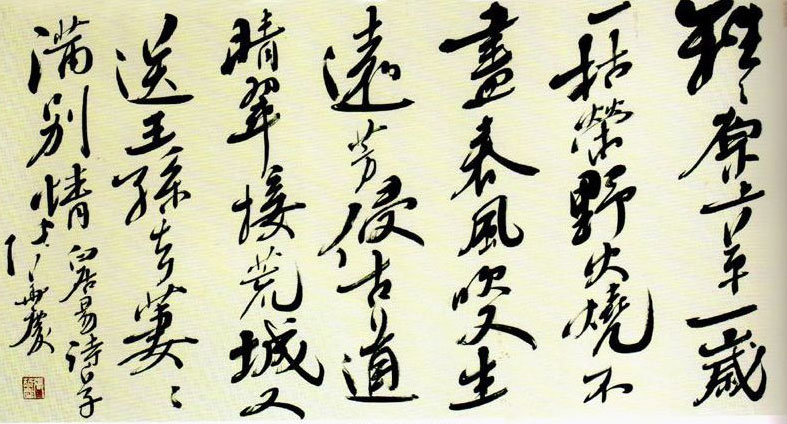 離々原上草一歲
一枯榮野火燒不
盡春風吹又生
遠芳侵古道
晴翠接荒城又
送王孫去萋々
满别情
白居易詩